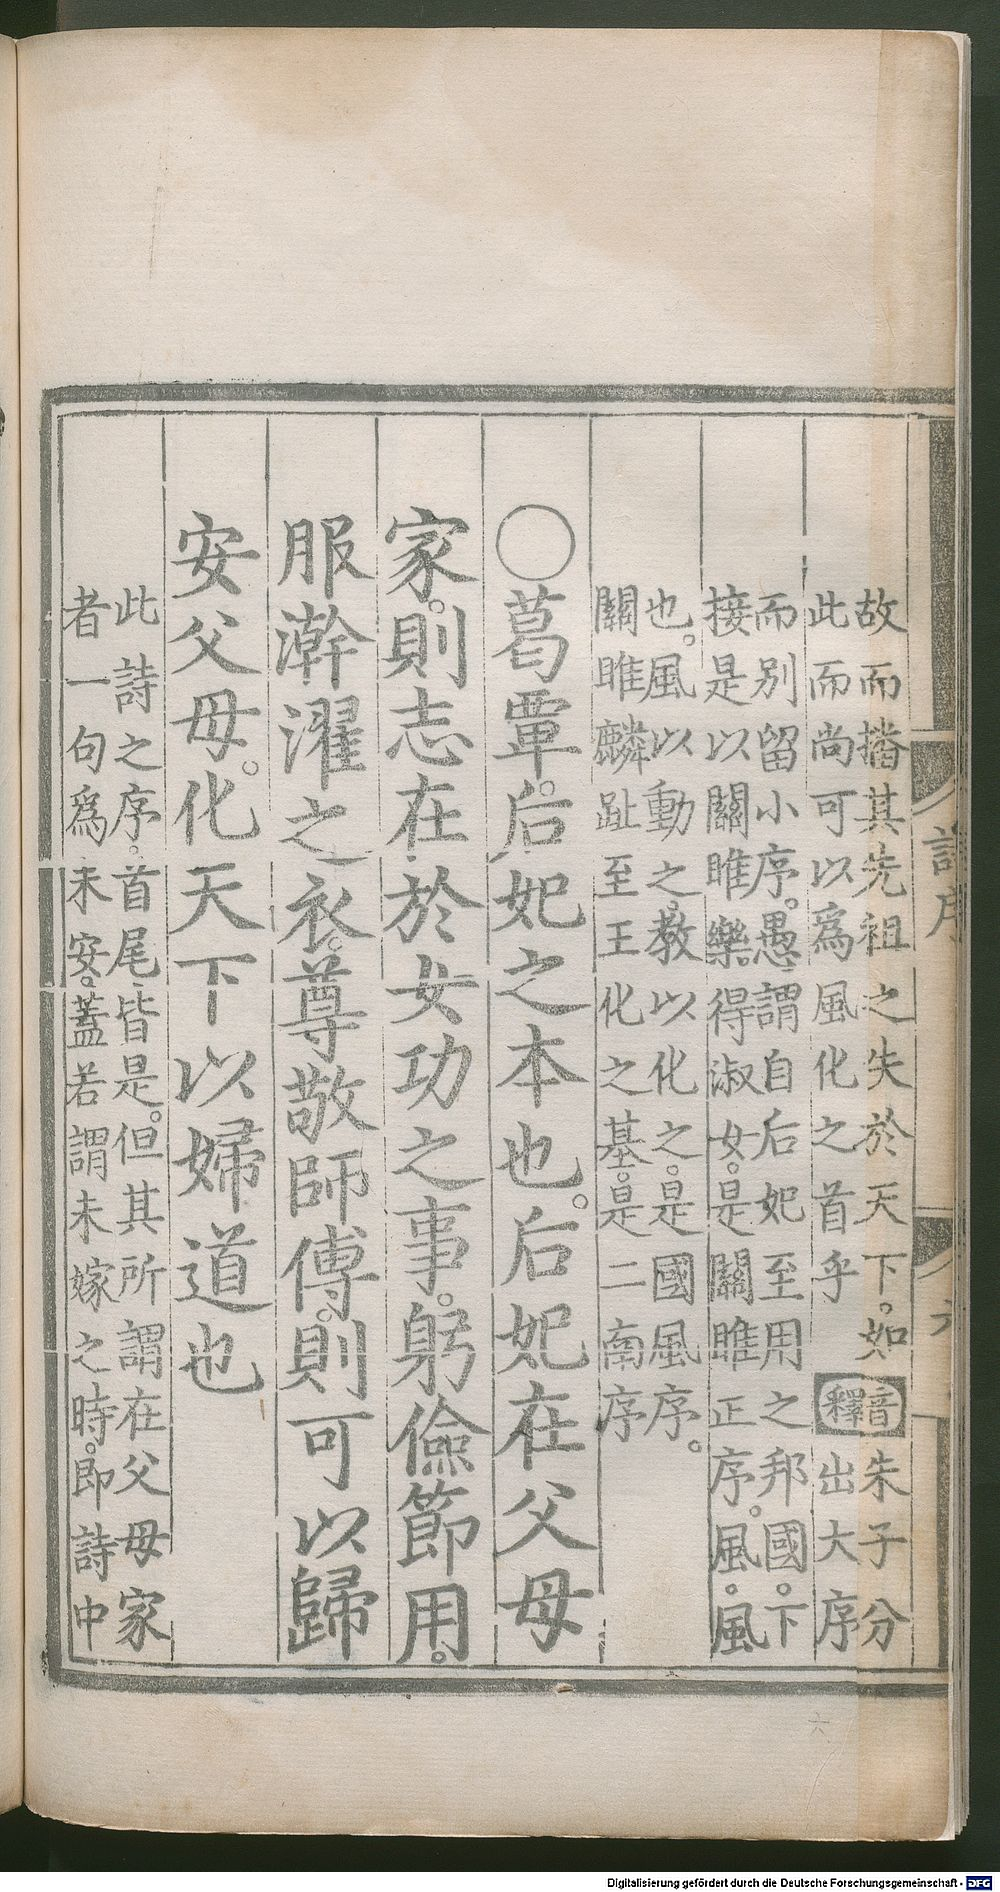 故而播其先祖之失於天下。如
此而尚可以爲風化之首乎
音釋
朱子分
出大序
而別留小序。愚謂自后妃至用之邦國。下
接是以關雎樂得淑女。是關雎正序。風。風
也。風以動之。教以化之。是國風序。
關雎麟趾至王化之基。是二南序
○葛覃。后妃之本也。后妃在父母
家。則志在於女功之事。躬儉節用。
服澣濯之衣。尊敬師傅。則可以歸
安父母。化天下以婦道也
此詩之序。首尾皆是。但其所謂在父母家
者一句爲未安。蓋若謂未嫁之時。即詩中
六
Digitalisierung gefördert durch die Deutsche Forschungsgemeinschaft - DFG